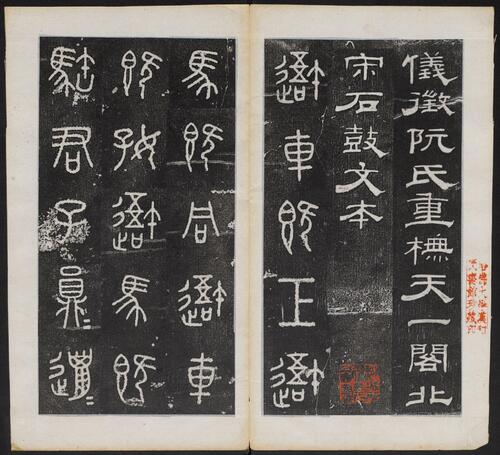 儀徵阮氏重橅天一閣北
宋石鼓文本
避車既工避
馬既同避車
既好避馬既
君子員邋